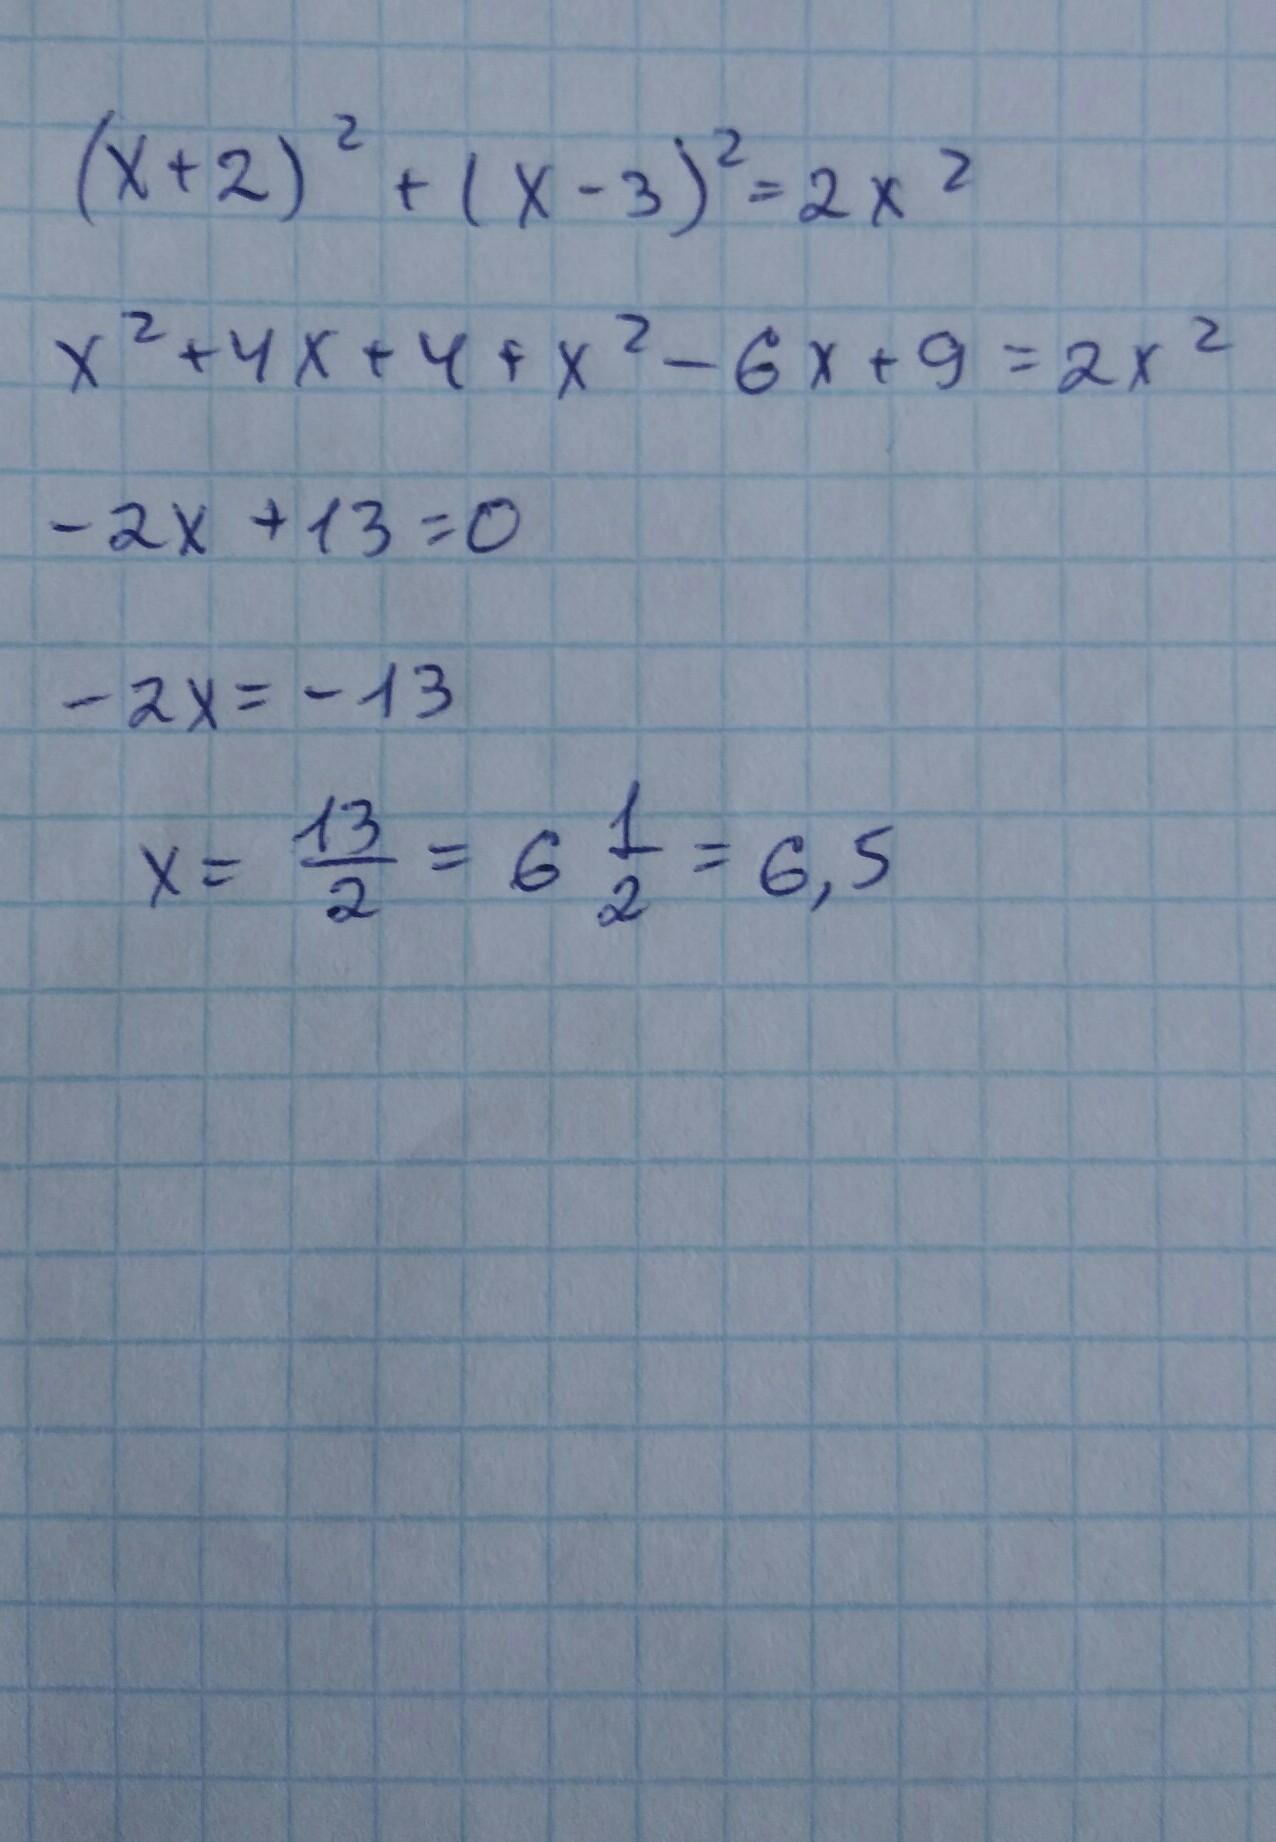 (x+2)² + (x-3)² = 2x²
x² + 4x + 4 + x² - 6x + 9 = 2x²
-2x + 13 = 0
-2x = -13
x = 13/2 = 6 1/2 = 6,5